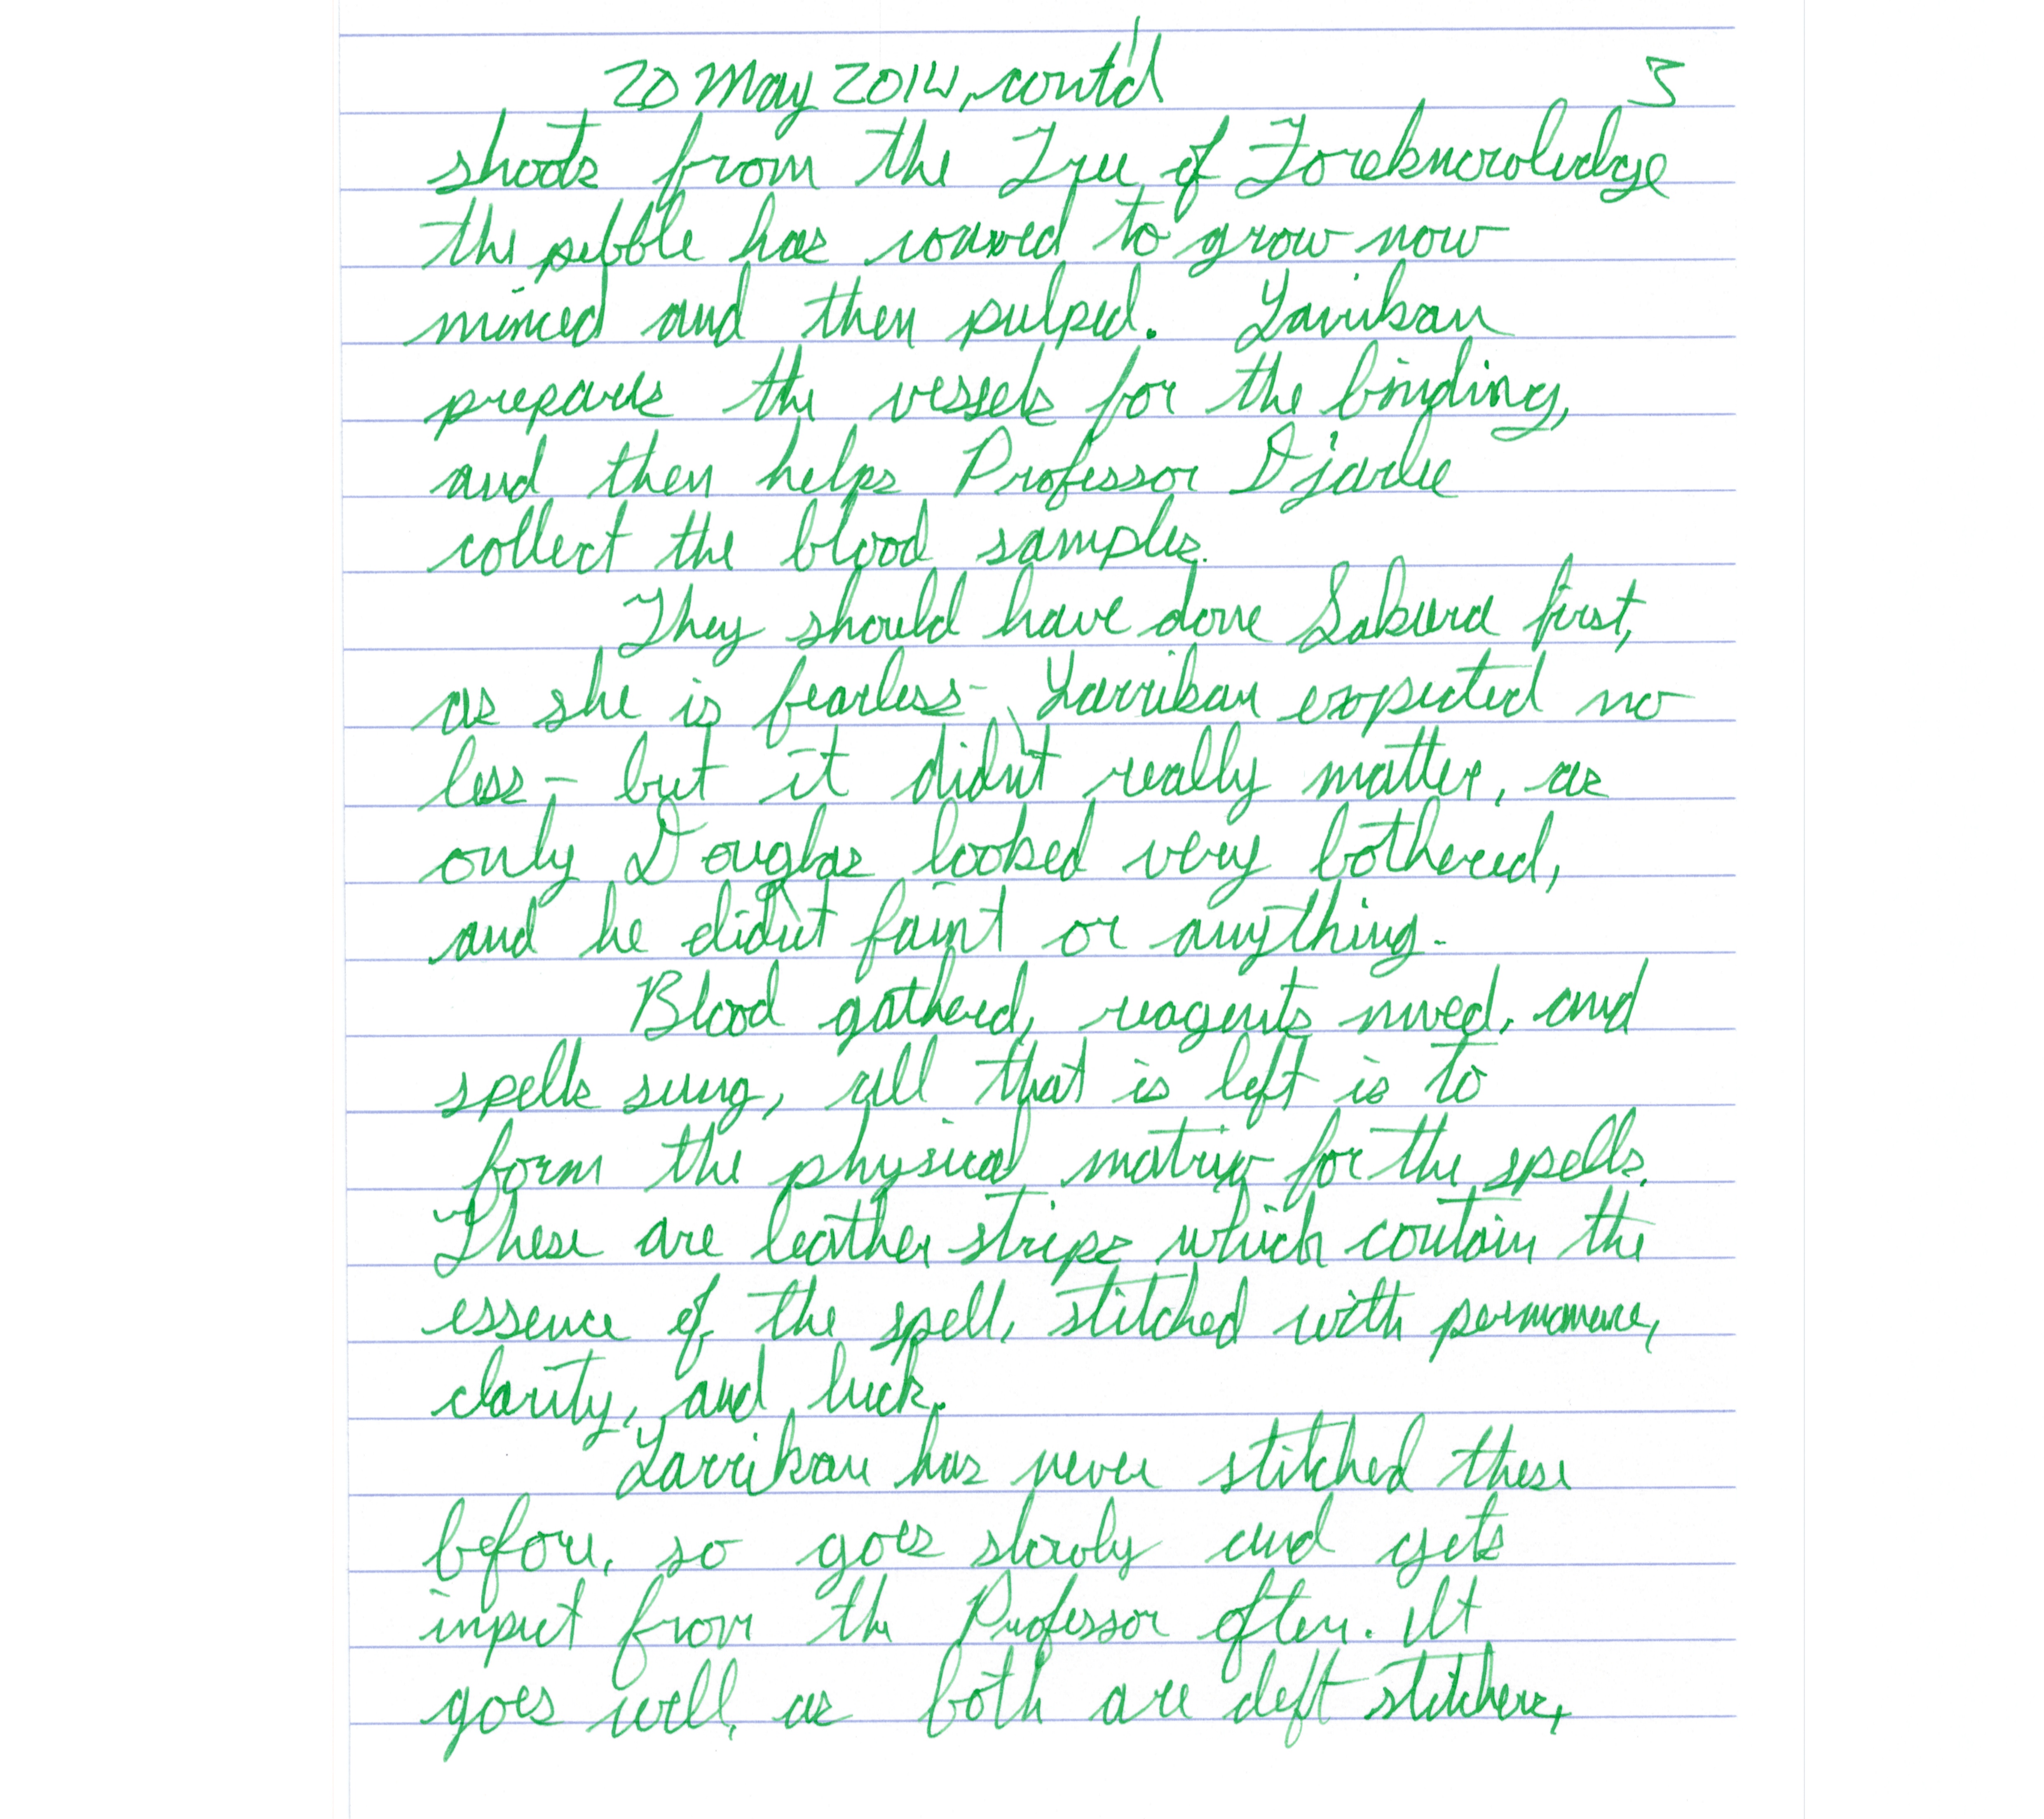 20 May 2014, cont'd 3
shoots from the Tree of Foreknowledge
the pebble has roared to grow now
minced and then pulped. Larrikan
prepares the vessels for the binding,
and then helps Professor Djarlee
collect the blood samples.
They should have done Sakura first,
as she is fearless - Larrikan expected no
less - but it didn't really matter, as
only Douglas looked very bothered,
and he didn't faint or anything.
Blood gathered, reagents mixed, and
spells sung, all that is left is to
form the physical matrix for the spells.
These are leather strips which contain the
essence of the spell, stitched with permanence,
clarity, and luck.
Larrikan has never stitched these
before, so goes slowly and gets
input from the Professor often. It
goes well, as both are deft stitchers,